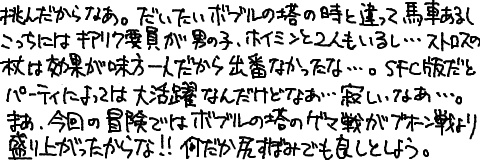 挑んだからなあ。だいたいボブルの塔の時と違って馬車あるし
こっちにはギアリク要員が男の子、ホイミンと2人もいるし…ストロスの
杖は効果が味方一人だから出番なかったな…。SFC版だと
パーティによっては大活躍なんだけどなあ…寂しいなあ…。
まあ、今回の冒険ではボブルの塔のゲマ戦がブオーン戦より
盛り上がったからな!!何だか尻すぼみでも良しとしよう。